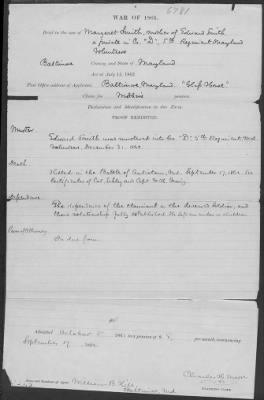 6781
WAR OF 1861.
Brief in the case of Margaret Smith, mother of Edward Smith
a private in Co. "D", 5th Regiment Maryland
Volunteers
Baltimore County and State of Maryland
Act of July 14, 1862.
Post Office address of Applicant, Baltimore, Maryland,
Claim for Mother's pension.
Declaration and Identification in Due Form.
PROOF EXHIBITED.
Muster
Edward Smith was mustered into Co. "D" 5th Regiment Md.
Volunteers, December 31, 1861.
Death
Killed in the Battle of Antietam, Md. September 17, 1862. See
Certificates of Col. and Capt.
Dependence
The dependence of the claimant on the deceased soldier, and
their relationship fully established. He left no widow or children
Power of Attorney
In due form
Admitted October 8 186 to a pension of $ 8 per month, commencing
September 17, 1862.
Name and Residence of Agent, William B. Hill,
Baltimore, Md